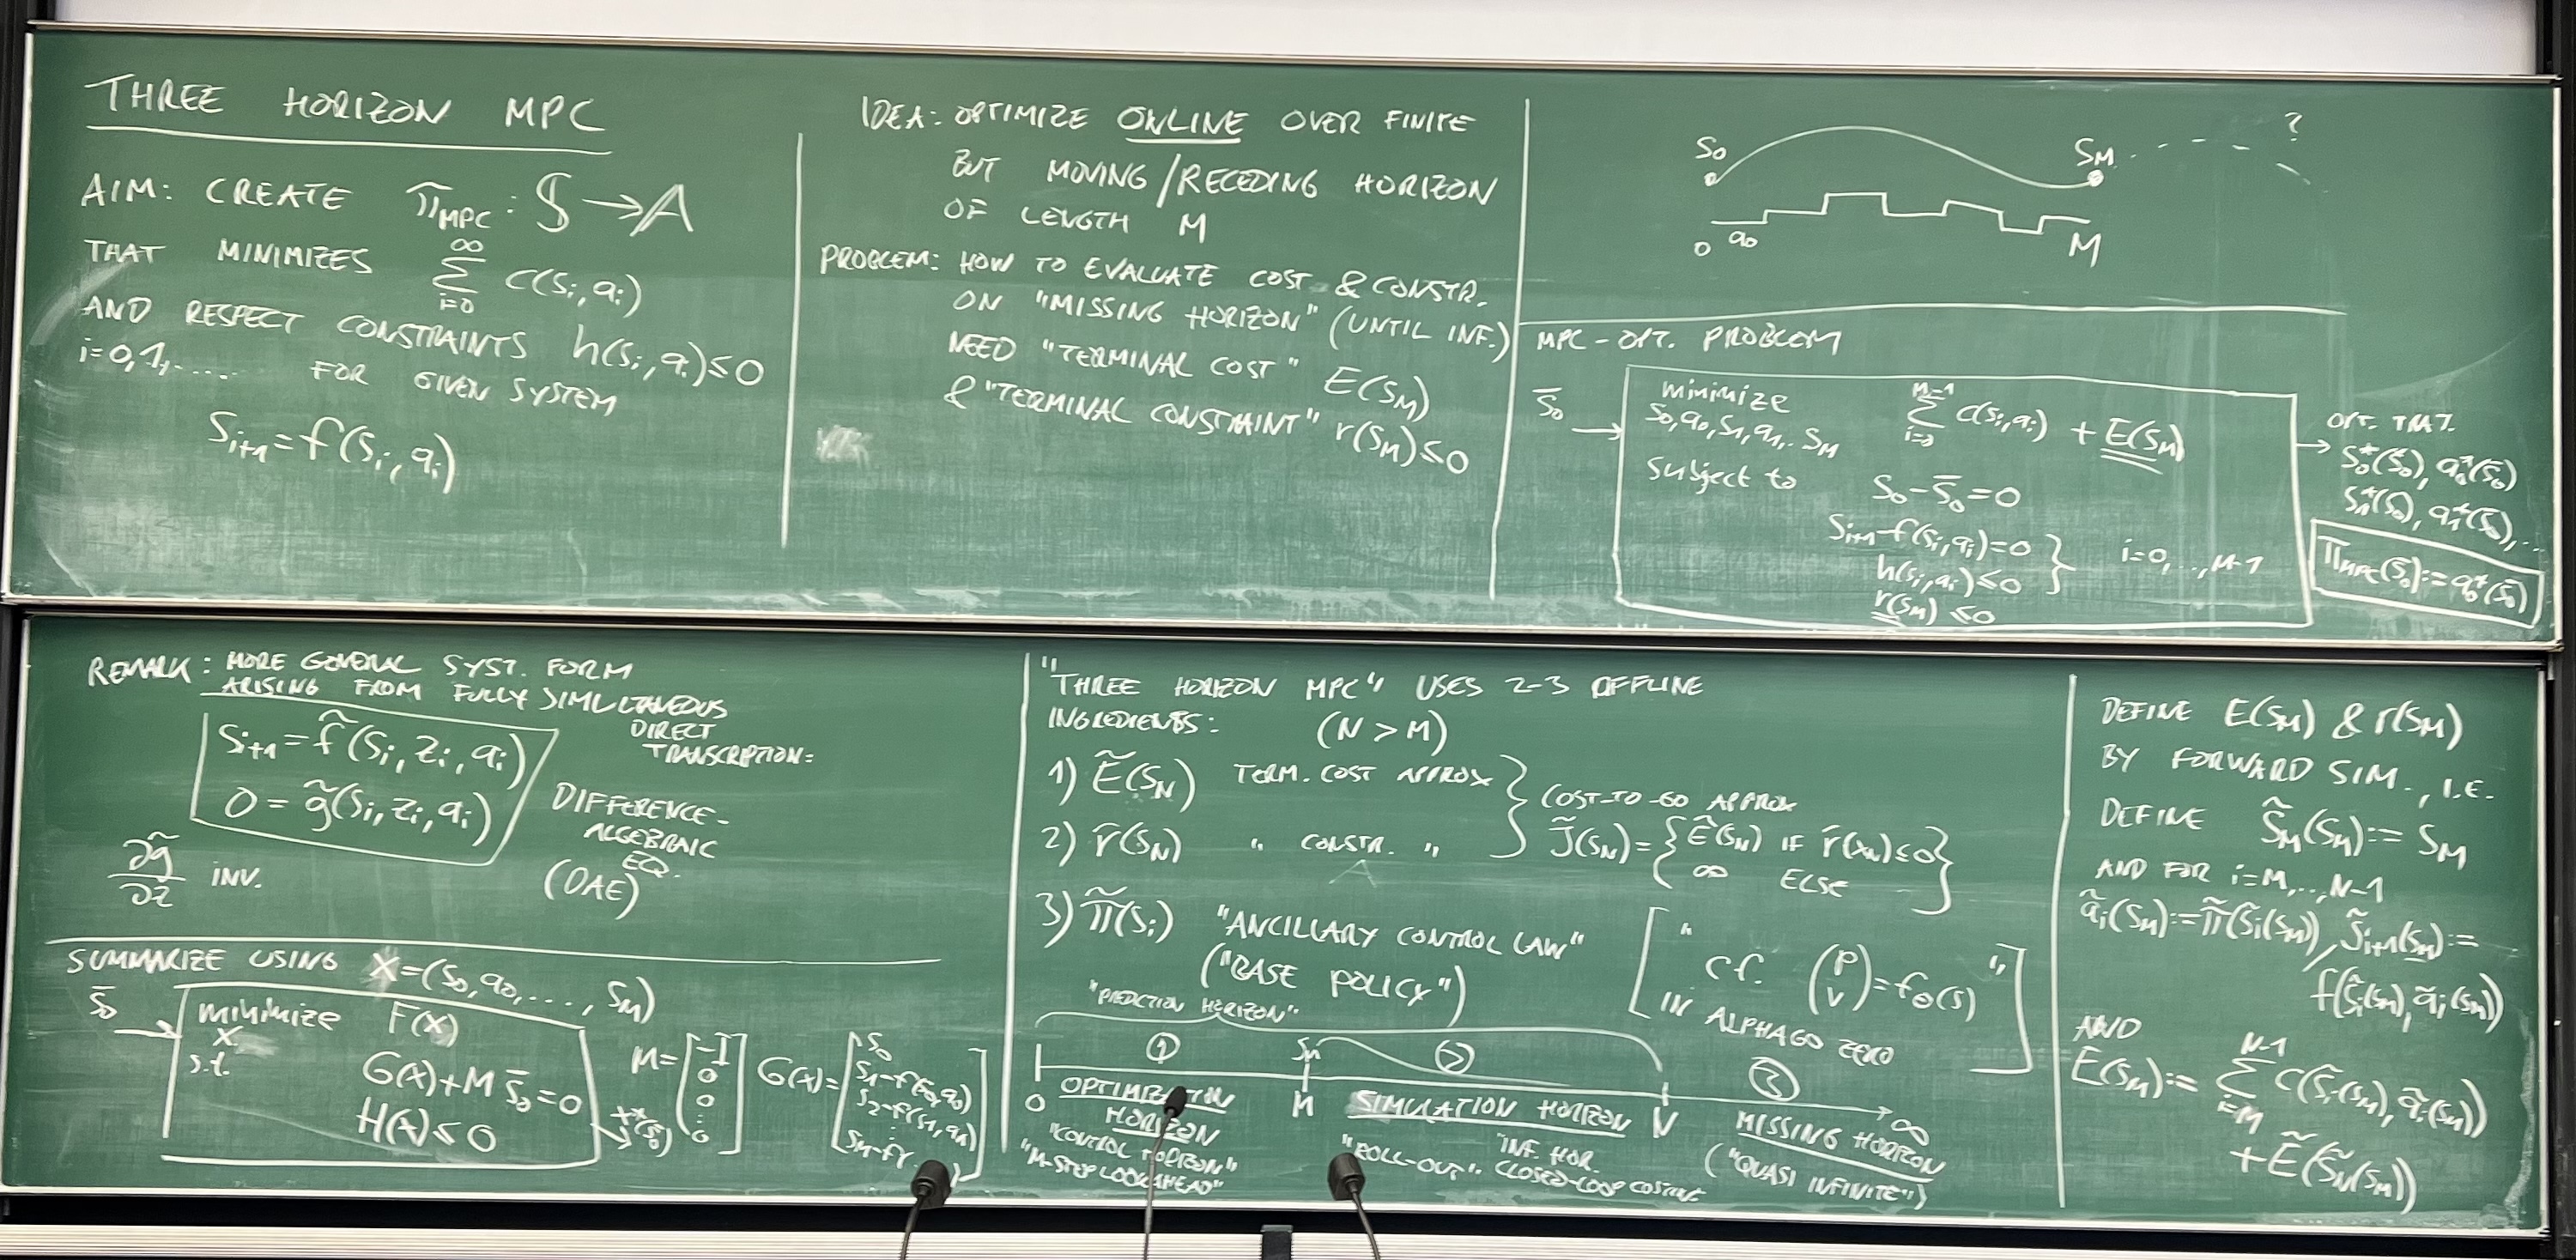 THREE HORIZON MPC
AIM: CREATE π̃_MPC : 𝕊 → A
THAT MINIMIZES ∑_{i=0}^{∞} c(s_i, a_i)
AND RESPECT CONSTRAINTS h(s_i, a_i) ≤ 0
i=0,1,..... FOR GIVEN SYSTEM
s_{i+1} = f(s_i, a_i)
IDEA: OPTIMIZE ONLINE OVER FINITE
BUT MOVING/RECEDING HORIZON
OF LENGTH M
PROBLEM: HOW TO EVALUATE COST & CONSTR.
ON "MISSING HORIZON" (UNTIL INF.)
NEED "TERMINAL COST" E(s_M)
& "TERMINAL CONSTRAINT" r(s_M) ≤ 0
s_0 s_M ?
0 a_0 M
MPC-OPT. PROBLEM
s̄_0
minimize ∑_{i=0}^{M-1} c(s_i, a_i) + E(s_M)
s_0, a_0, s_1, a_1, .. s_M
subject to s_0 - s̄_0 = 0
s_{i+1} - f(s_i, a_i) = 0
h(s_i, a_i) ≤ 0 } i=0,..,M-1
r(s_M) ≤ 0
OPT. TRAJ.
s_0^*(s̄_0), a_0^*(s̄_0)
s_1^*(s̄_0), a_1^*(s̄_0), ..
π_MPC(s̄_0) := a_0^*(s̄_0)
REMARK: MORE GENERAL SYST. FORM
ARISING FROM FULLY SIMULTANEOUS
DIRECT
TRANSCRIPTION:
s_{i+1} = f̃(s_i, z_i, a_i)
0 = g̃(s_i, z_i, a_i)
∂g̃/∂z INV.
DIFFERENCE-
ALGEBRAIC
EQ.
(DAE)
SUMMARIZE USING X = (s_0, a_0, ..., s_M)
s̄_0
minimize F(X)
X
s.t. G(X) + M s̄_0 = 0
H(X) ≤ 0
X^*(s̄_0)
M = [-I 0 0 ⋮ 0]
G(X) = [s_0
s_1 - f(s_0, a_0)
s_2 - f(s_1, a_1)
⋮
s_M - f(
"THREE HORIZON MPC" USES 2-3 OFFLINE
INGREDIENTS: (N > M)
1) Ẽ(s_N) TERM. COST APPROX
2) r̃(s_N) " CONSTR. "
COST-TO-GO APPROX
J̃(s_N) = { Ẽ(s_N) IF r̃(x_N) ≤ 0
∞ ELSE }
3) π̃(s_i) "ANCILLARY CONTROL LAW"
("BASE POLICY")
[" cf. (p v) = f_θ(s) "
IN ALPHAGO ZERO]
"PREDICTION HORIZON"
① s_M ② ③
0 M N ∞
OPTIMIZATION
HORIZON
"CONTROL HORIZON"
"M-STEP LOOKAHEAD"
SIMULATION HORIZON
"ROLL-OUT" INF. HOR.
CLOSED-LOOP COSTING
MISSING HORIZON
("QUASI INFINITE")
DEFINE E(s_M) & r(s_M)
BY FORWARD SIM., I.E.
DEFINE s̃_M(s_M) := s_M
AND FOR i=M,..,N-1
ã_i(s_M) := π̃(s̃_i(s_M)), s̃_{i+1}(s_M) :=
f(s̃_i(s_M), ã_i(s_M))
AND
E(s_M) := ∑_{i=M}^{N-1} c(s̃_i(s_M), ã_i(s_M))
+ Ẽ(s̃_N(s_M))